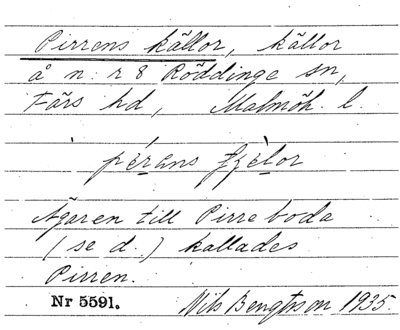 Pirrens källor, källor
å n:r 8 Röddinge sn,
Färs hd, Malmöh. l.
Ägaren till Pirreboda
(se d.) kallades
Pirren.
Nr 5591. Nils Bengtsson 1935.